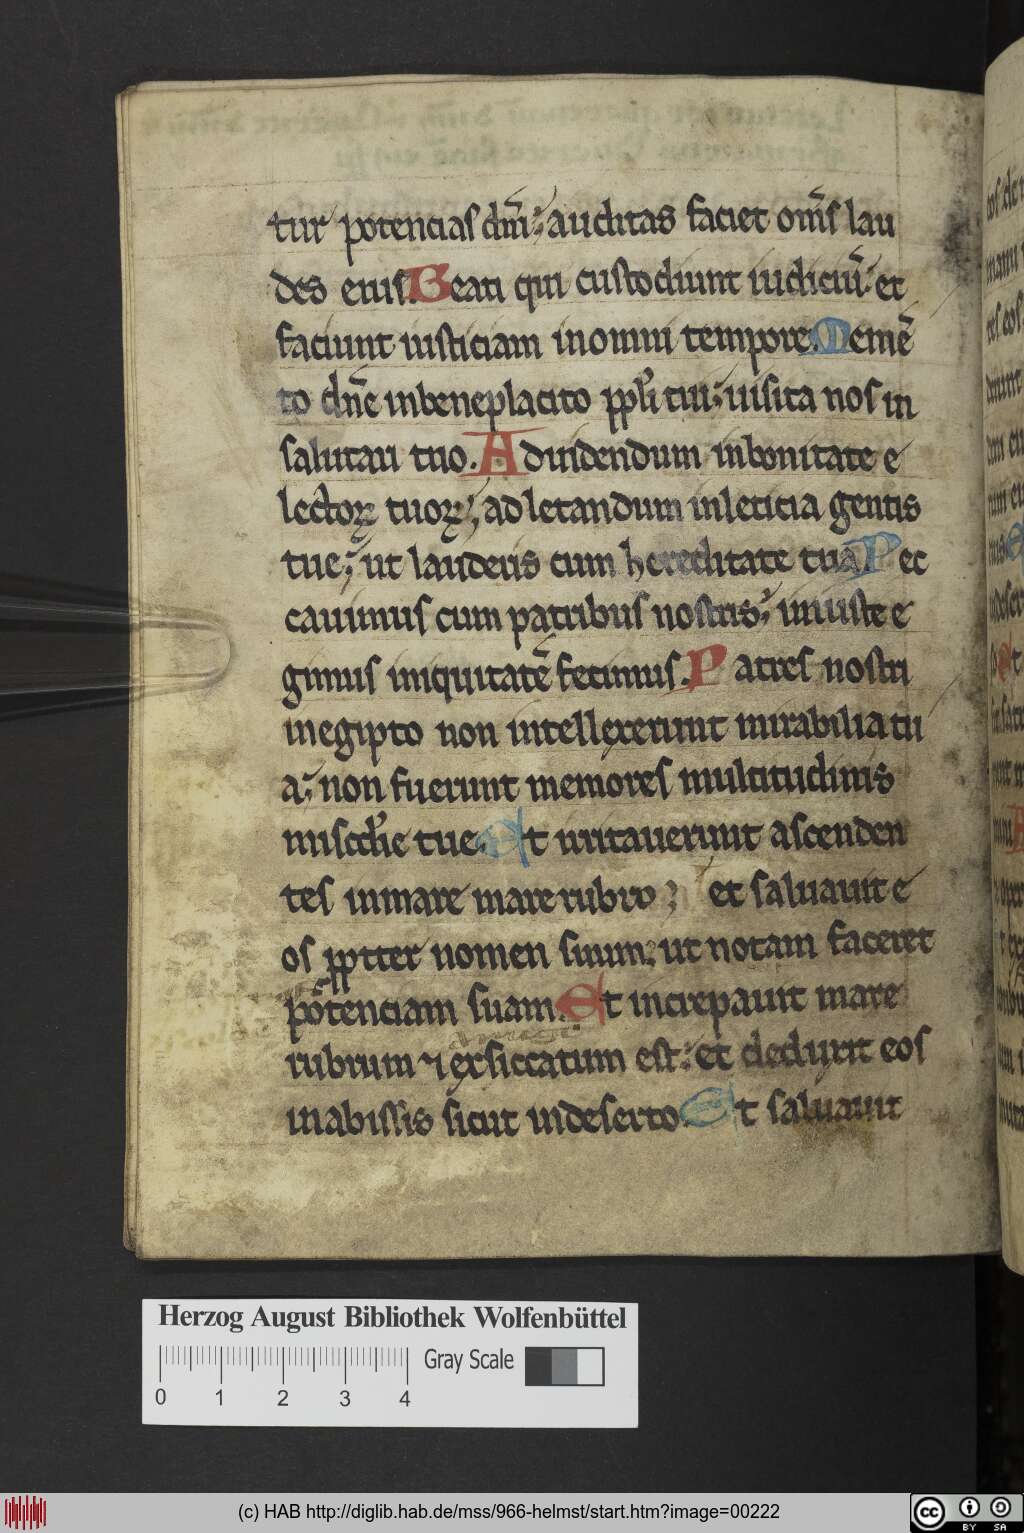 tur potencias dñi; auditas faciet om̄s lau
des eius. Beati qui custodiunt iudiciū et
faciunt iusticiam in omni tempore. Memē
to dn̄e in beneplacito ppl̓i tui; uisita nos in
salutari tuo. Ad uidendum in bonitate e
lectoꝝ tuoꝝ; ad letandum in leticia gentis
tue; ut lauderis cum hereditate tua. Pec
cauimus cum patribus nostris; iniuste e
gimus iniquitatē fecimus. Patres nostri
in egipto non intellexerunt mirabilia tu
a; non fuerunt memores multitudinis
misc̄d̓ie tue. Et irritauerunt ascenden
tes in mare mare rubro; et saluauit e
os ppter nomen suum; ut notam faceret
potenciam suam. Et increpauit mare
rubrum ⁊ exsiccatum est; et deduxit eos
in abissis sicut in deserto. Et saluauit
Herzog August Bibliothek Wolfenbüttel
Gray Scale
0 1 2 3 4
(c) HAB http://diglib.hab.de/mss/966-helmst/start.htm?image=00222
cc BY SA